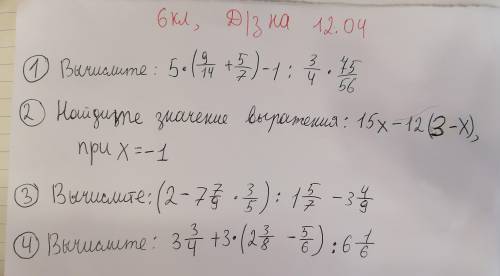 6кл, Д/З на 12.04
① Вычислите: 5·(9/14 + 5/7) - 1 : 3/4 · 45/56
② Найдите значение выражения: 15x - 12(3 - x),
при x = -1
③ Вычислите: (2 - 7 7/9 · 3/5) : 1 5/7 - 3 4/9
④ Вычислите: 3 3/4 + 3·(2 3/8 - 5/6) : 6 1/6